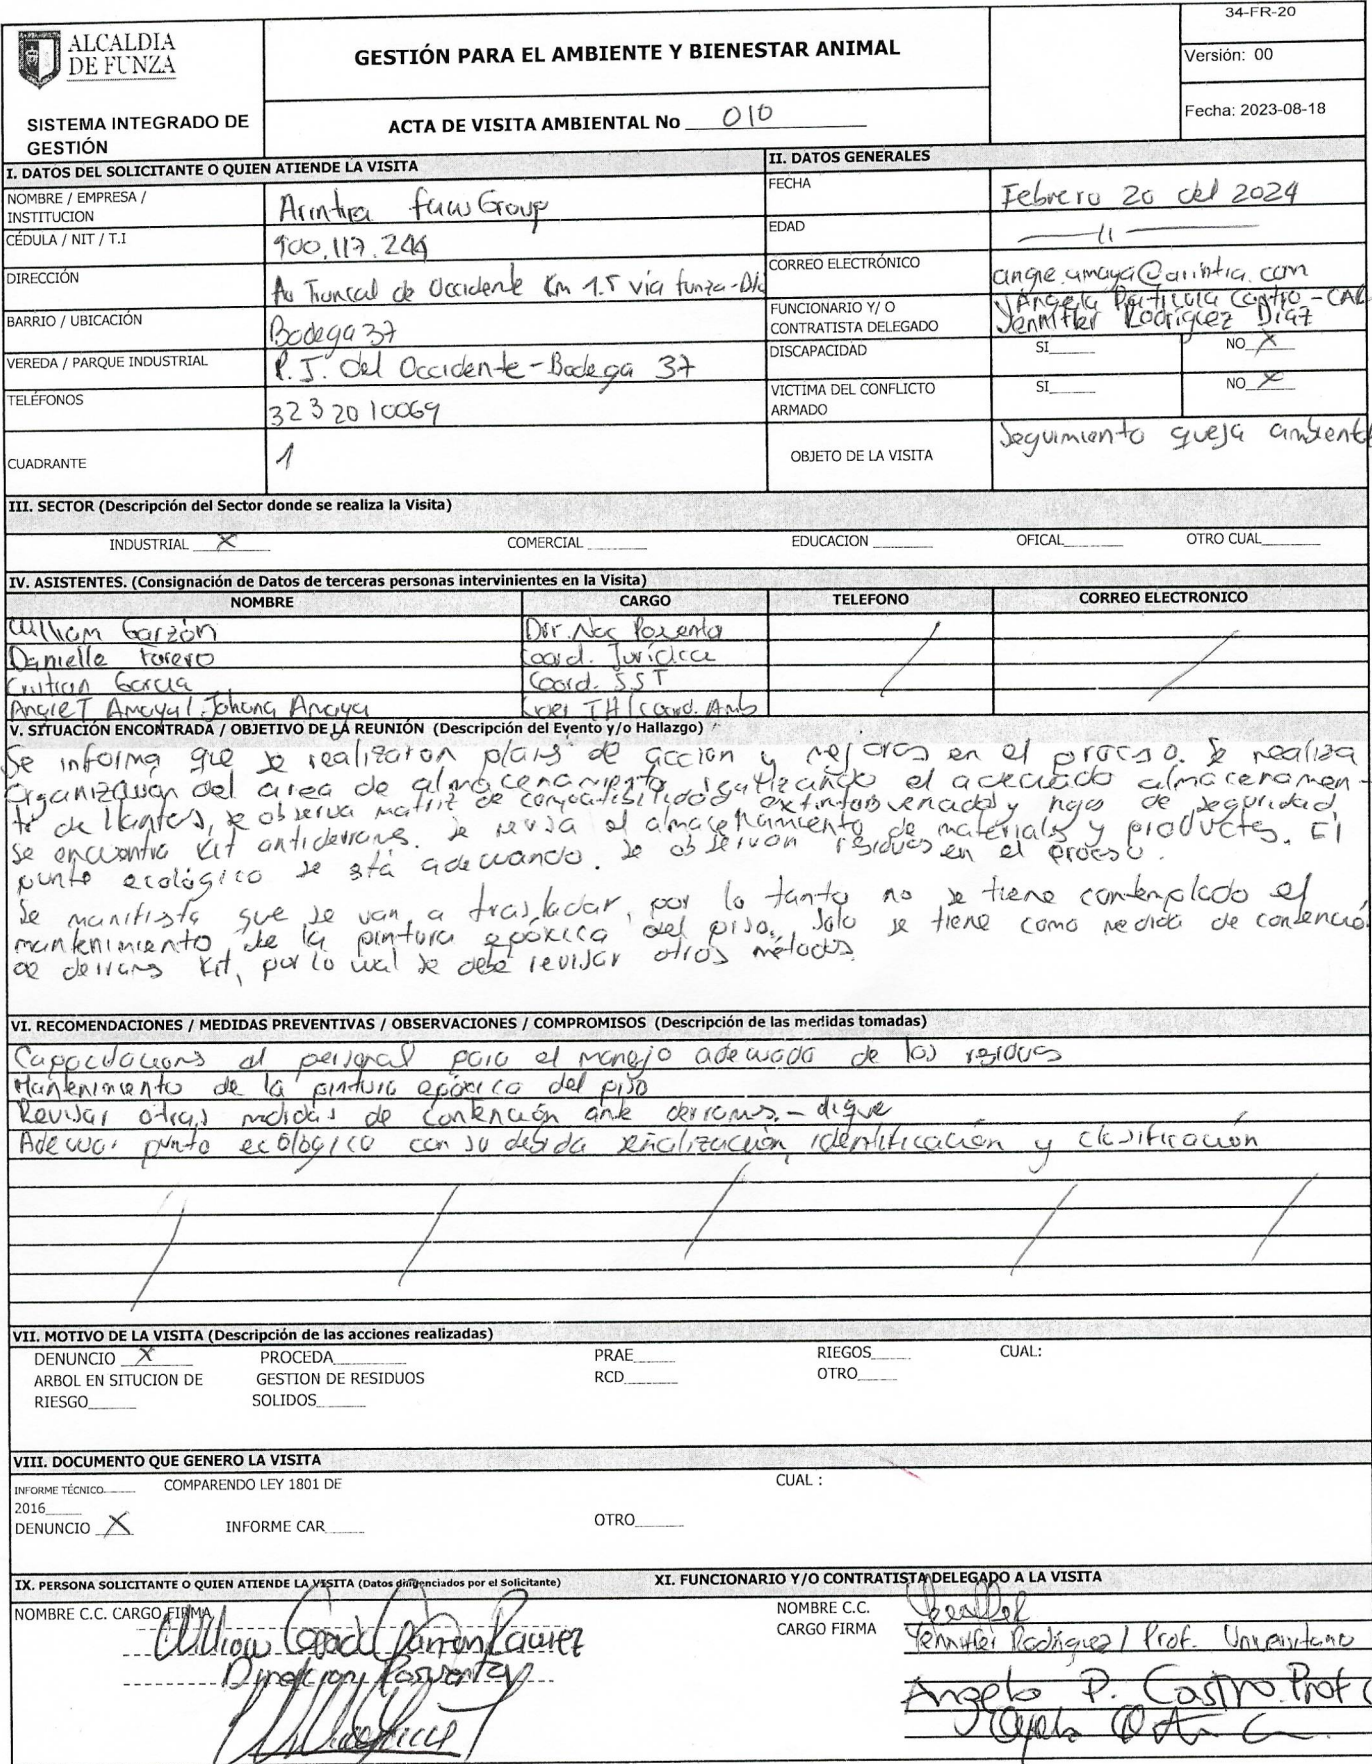 ALCALDIA
DE FUNZA
SISTEMA INTEGRADO DE
GESTIÓN
GESTIÓN PARA EL AMBIENTE Y BIENESTAR ANIMAL
ACTA DE VISITA AMBIENTAL No 010
34-FR-20
Versión: 00
Fecha: 2023-08-18
I. DATOS DEL SOLICITANTE O QUIEN ATIENDE LA VISITA
NOMBRE / EMPRESA /
INSTITUCION
Group
CÉDULA / NIT / T.I 900.117.244
DIRECCIÓN Av Troncal de Occidente Km 1.5 vía funza-
BARRIO / UBICACIÓN Bodega 37
VEREDA / PARQUE INDUSTRIAL P.I. del Occidente-Bodega 37
TELÉFONOS 3232010069
CUADRANTE 1
II. DATOS GENERALES
FECHA Febrero 20 del 2024
EDAD
CORREO ELECTRÓNICO
FUNCIONARIO Y/ O
CONTRATISTA DELEGADO
Angela Patricia Castro-CAR
Jennifer Rodríguez Díaz
DISCAPACIDAD SI NO X
VICTIMA DEL CONFLICTO
ARMADO
SI NO X
OBJETO DE LA VISITA Seguimiento queja ambiental
III. SECTOR (Descripción del Sector donde se realiza la Visita)
INDUSTRIAL X COMERCIAL EDUCACION OFICAL OTRO CUAL
IV. ASISTENTES. (Consignación de Datos de terceras personas intervinientes en la Visita)
NOMBRE CARGO TELEFONO CORREO ELECTRONICO
William Garzón Dir. Nac Posventa
Danielle Forero Coord. Jurídica
Cristian Garcia Coord. SST
Angie T Amaya / Johana Anaya TH/Coord. Amb
V. SITUACIÓN ENCONTRADA / OBJETIVO DE LA REUNIÓN (Descripción del Evento y/o Hallazgo)
Se informa que se realizaron plans de acción y mejoras en el proceso. Se realiza
organización del area de almacenamiento el adecuado almacenamien-
to de llantas, se observa matriz de compatibilidad, y de seguridad
se encuentra kit antiderrams. Se revisa el almacenamiento de materials y productos. El
punto ecológico se está adecuando. Se observan residuos en el proceso.
Se manifista que se van a trasladar, por lo tanto no se tiene contemplado el
mantenimiento de la pintura epóxica del piso. Solo se tiene como medida de contención
de derrams kit, por lo cual se debe revisar otros métodos.
VI. RECOMENDACIONES / MEDIDAS PREVENTIVAS / OBSERVACIONES / COMPROMISOS (Descripción de las medidas tomadas)
Capacitacions al personal para el manejo adecuado de los residuos
Mantenimiento de la pintura epóxica del piso
Revisar otras medidas de contención ante derrams - dique
Adecuar punto ecológico con su debida señalización, identificación y clasificación
VII. MOTIVO DE LA VISITA (Descripción de las acciones realizadas)
DENUNCIO X PROCEDA PRAE RIEGOS CUAL:
ARBOL EN SITUCION DE GESTION DE RESIDUOS RCD OTRO
RIESGO SOLIDOS
VIII. DOCUMENTO QUE GENERO LA VISITA
INFORME TÉCNICO COMPARENDO LEY 1801 DE CUAL :
2016
DENUNCIO X INFORME CAR OTRO
IX. PERSONA SOLICITANTE O QUIEN ATIENDE LA VISITA (Datos diligenciados por el Solicitante)
NOMBRE C.C. CARGO FIRMA
XI. FUNCIONARIO Y/O CONTRATISTA DELEGADO A LA VISITA
NOMBRE C.C.
CARGO FIRMA
Jennifer Rodríguez / Prof. Universitario
Angela P. Castro. Prof